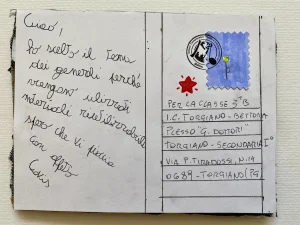 Ciao,
ho scelto il tema
dei generi perché
vengano utilizzati
materiali riutilizzabili
spero che vi piaccia
con affetto
PER LA CLASSE 3°B
I.C. TORGIANO-BETTONA
PLESSO "G. DOTTORI"
TORGIANO-SECONDARIA I°
VIA P. TIRADOSSI, N.14
0689-TORGIANO (PG